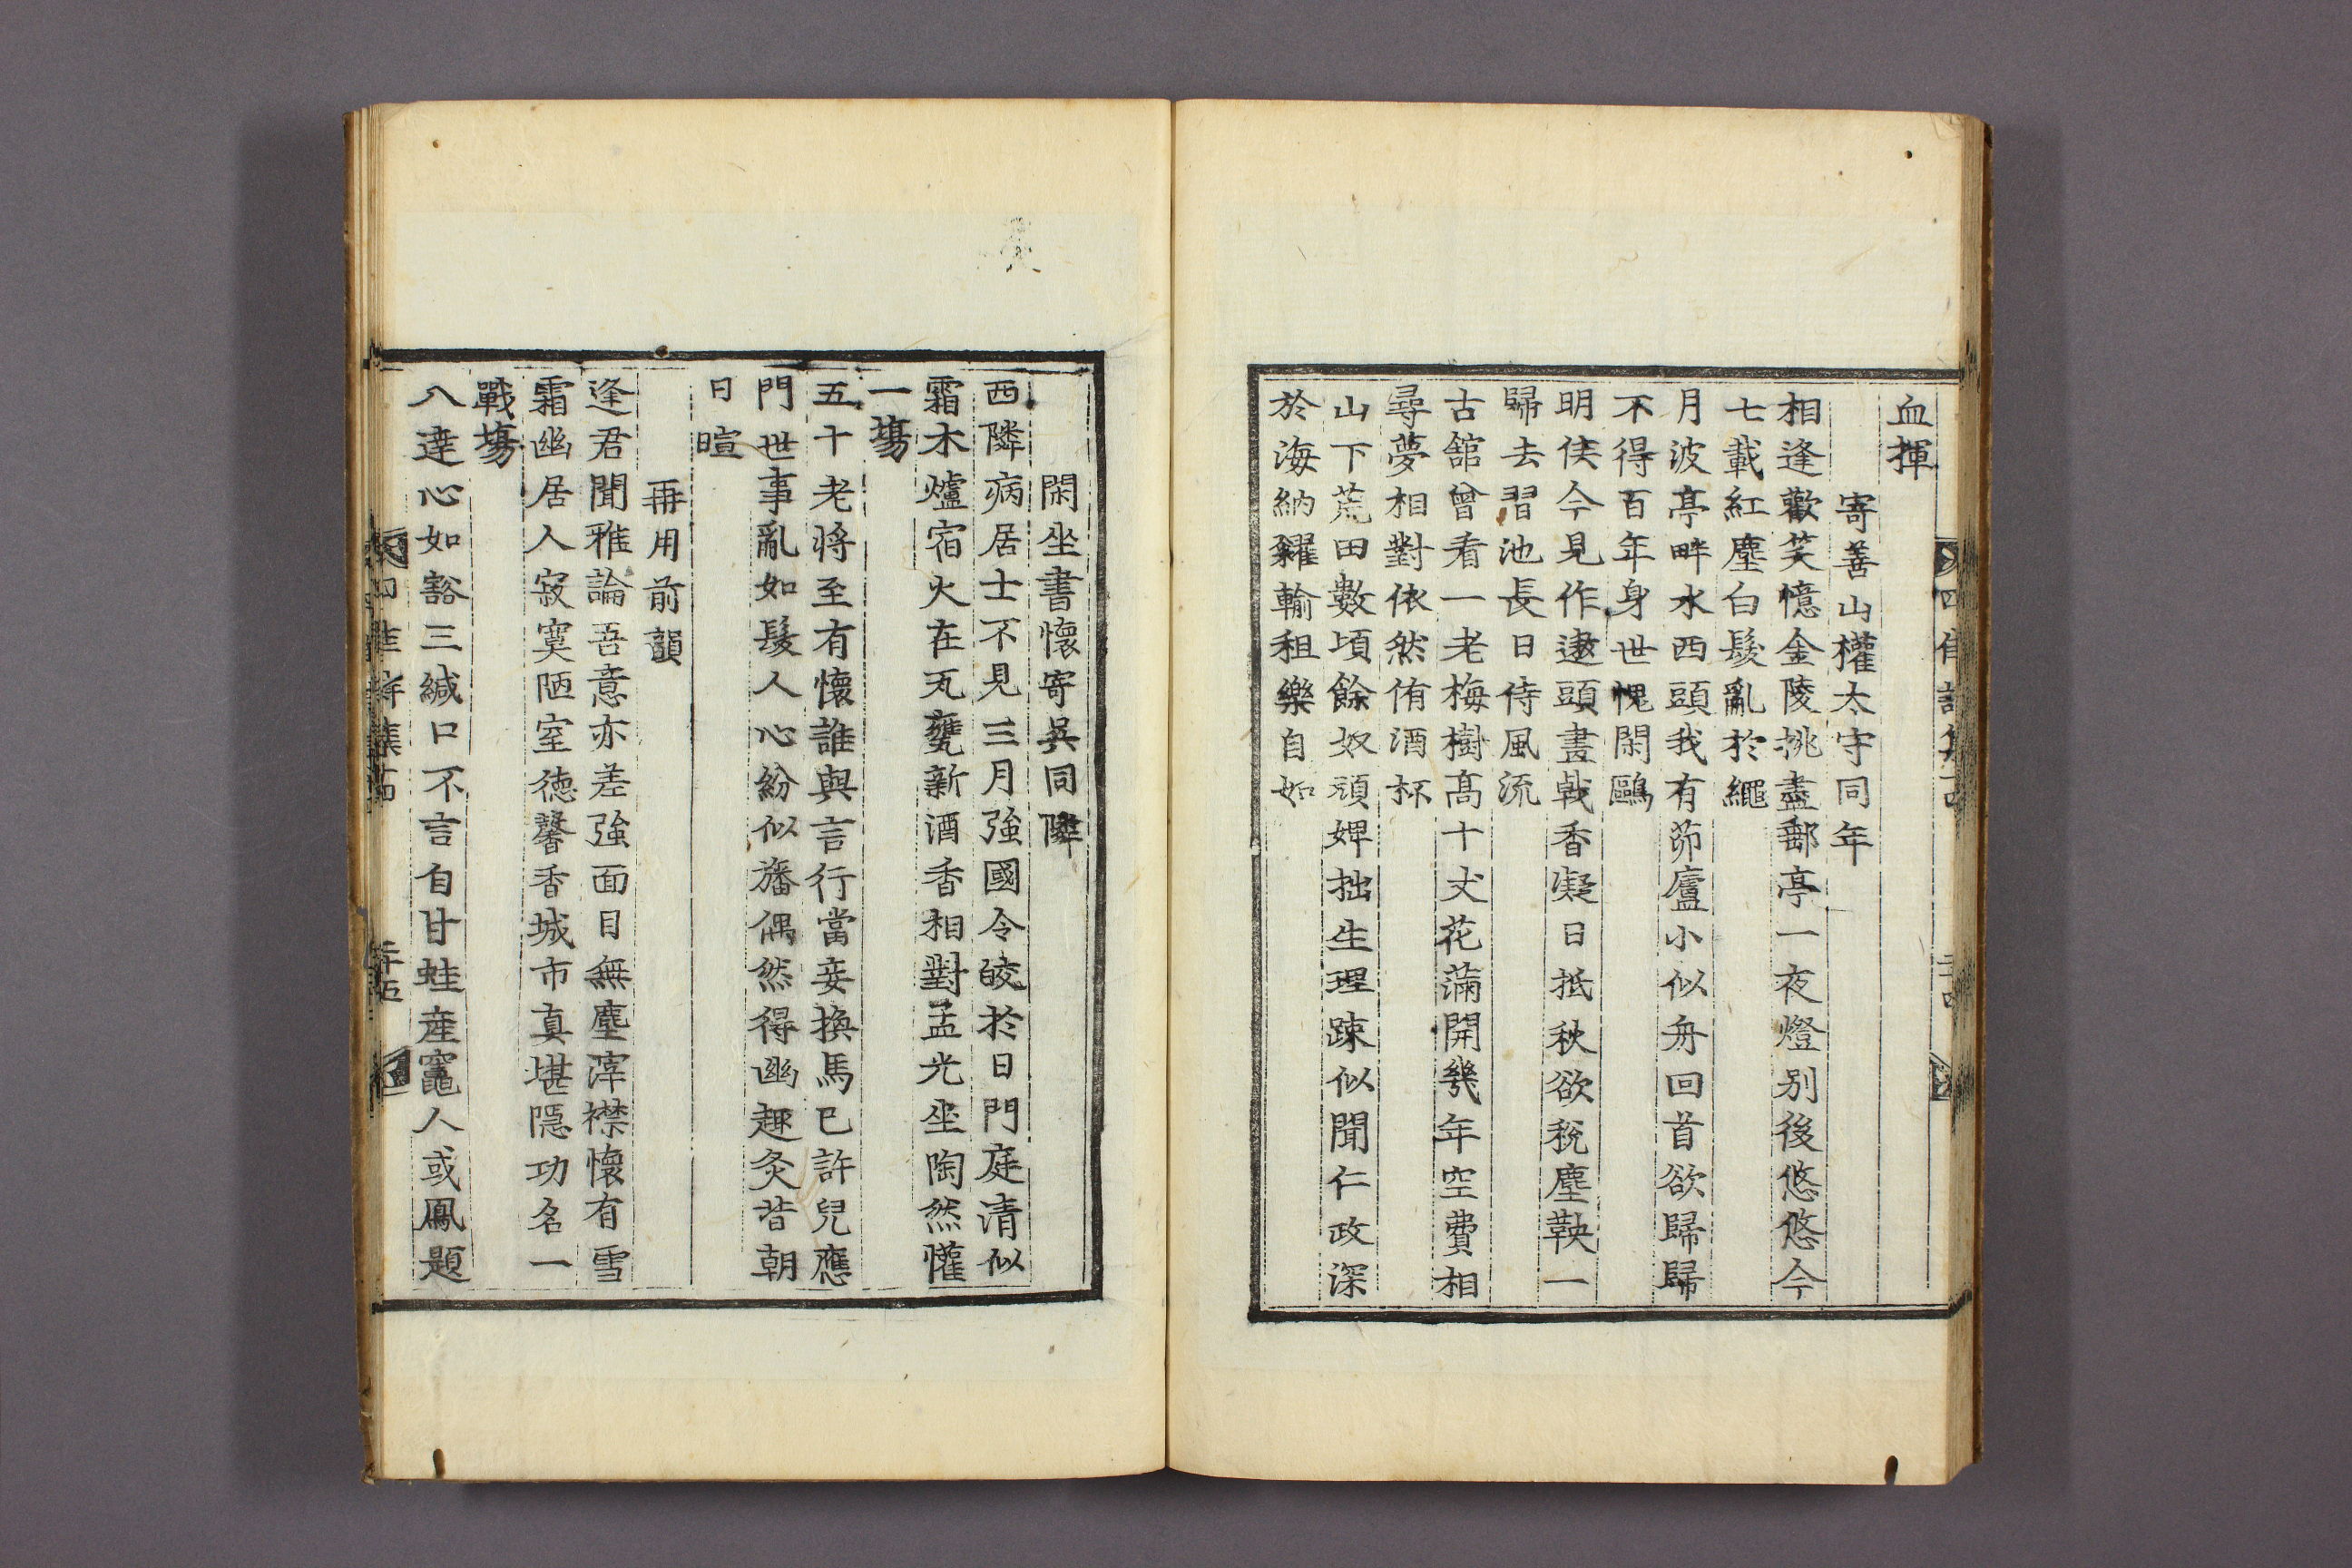 血揮
寄善山權太守同年
相逢歡笑憶金陵挑盡郵亭一夜燈別後悠悠今
七載紅塵白髮亂於繩
月波亭畔水西頭我有茆廬小似舟回首欲歸歸
不得百年身世愧閑鷗
明侯今見作遨頭晝戟香凝日抵秋欲稅塵鞅一
歸去習池長日侍風流
古舘曾看一老梅樹高十丈花滿開幾年空費相
尋夢相對依然侑酒杯
山下荒田數頃餘奴頑婢拙生理踈似聞仁政深
於海納糴輸租樂自如
閑坐書懷寄吳同隣
西隣病居士不見三月強國令皎於日門庭清似
霜木爐宿火在瓦甕新酒香相對孟光坐陶然懽
一塲
五十老將至有懷誰與言行當妾換馬已許兒應
門世事亂如髮人心紛似旛偶然得幽趣灸背朝
日暄
再用前韻
逢君聞雅論吾意亦差強面目無塵滓襟懷有雪
霜幽居人寂寞陋室德馨香城市真堪隱功名一
戰塲
八達心如豁三緘口不言自甘蛙産竈人或鳳題